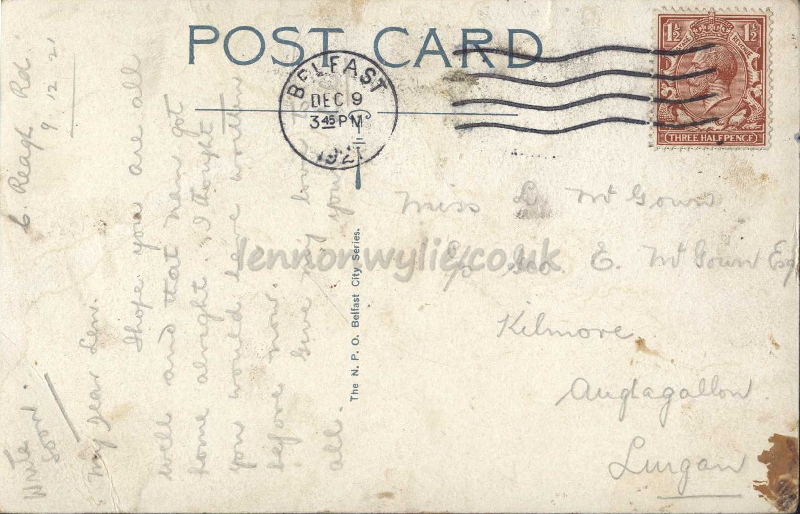 POST CARD
BELFAST
DEC 9
3 45 PM
1921
1½ 1½
THREE HALFPENCE
6 Reagh Rd.
9.12.21
My dear Len.
I hope you are all
well and that
home alright. I thought
you would have written
before now.
Give my love
you
all.
Write
soon.
The N. P. O. Belfast City Series.
Miss L. McGown
c/o Geo. E. McGown Esq
Kilmore
Aughagallon
Lurgan
lennonwylie.co.uk